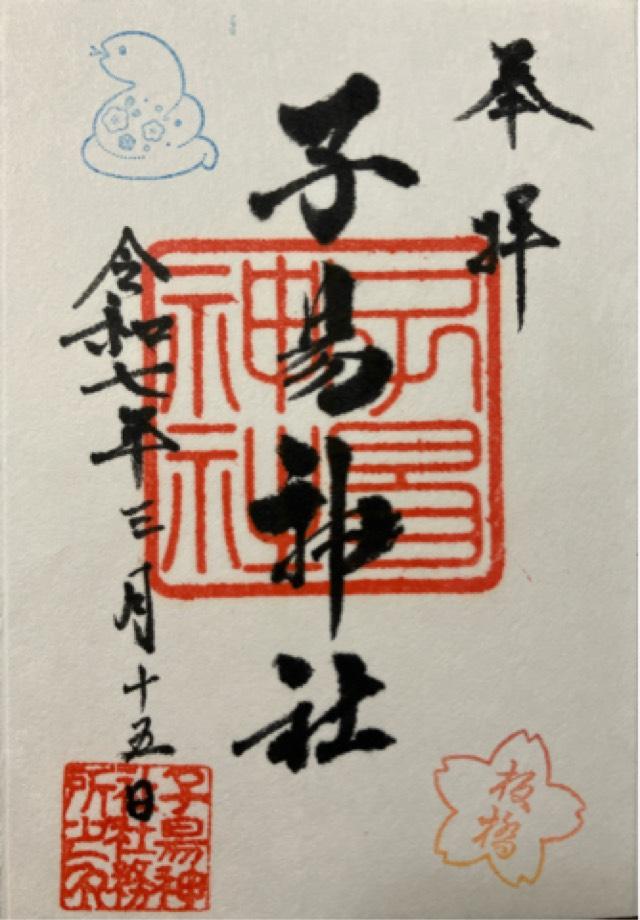 奉拝
子易神社
子易神社
令和七年三月十五日
子易神社務所之印
板橋